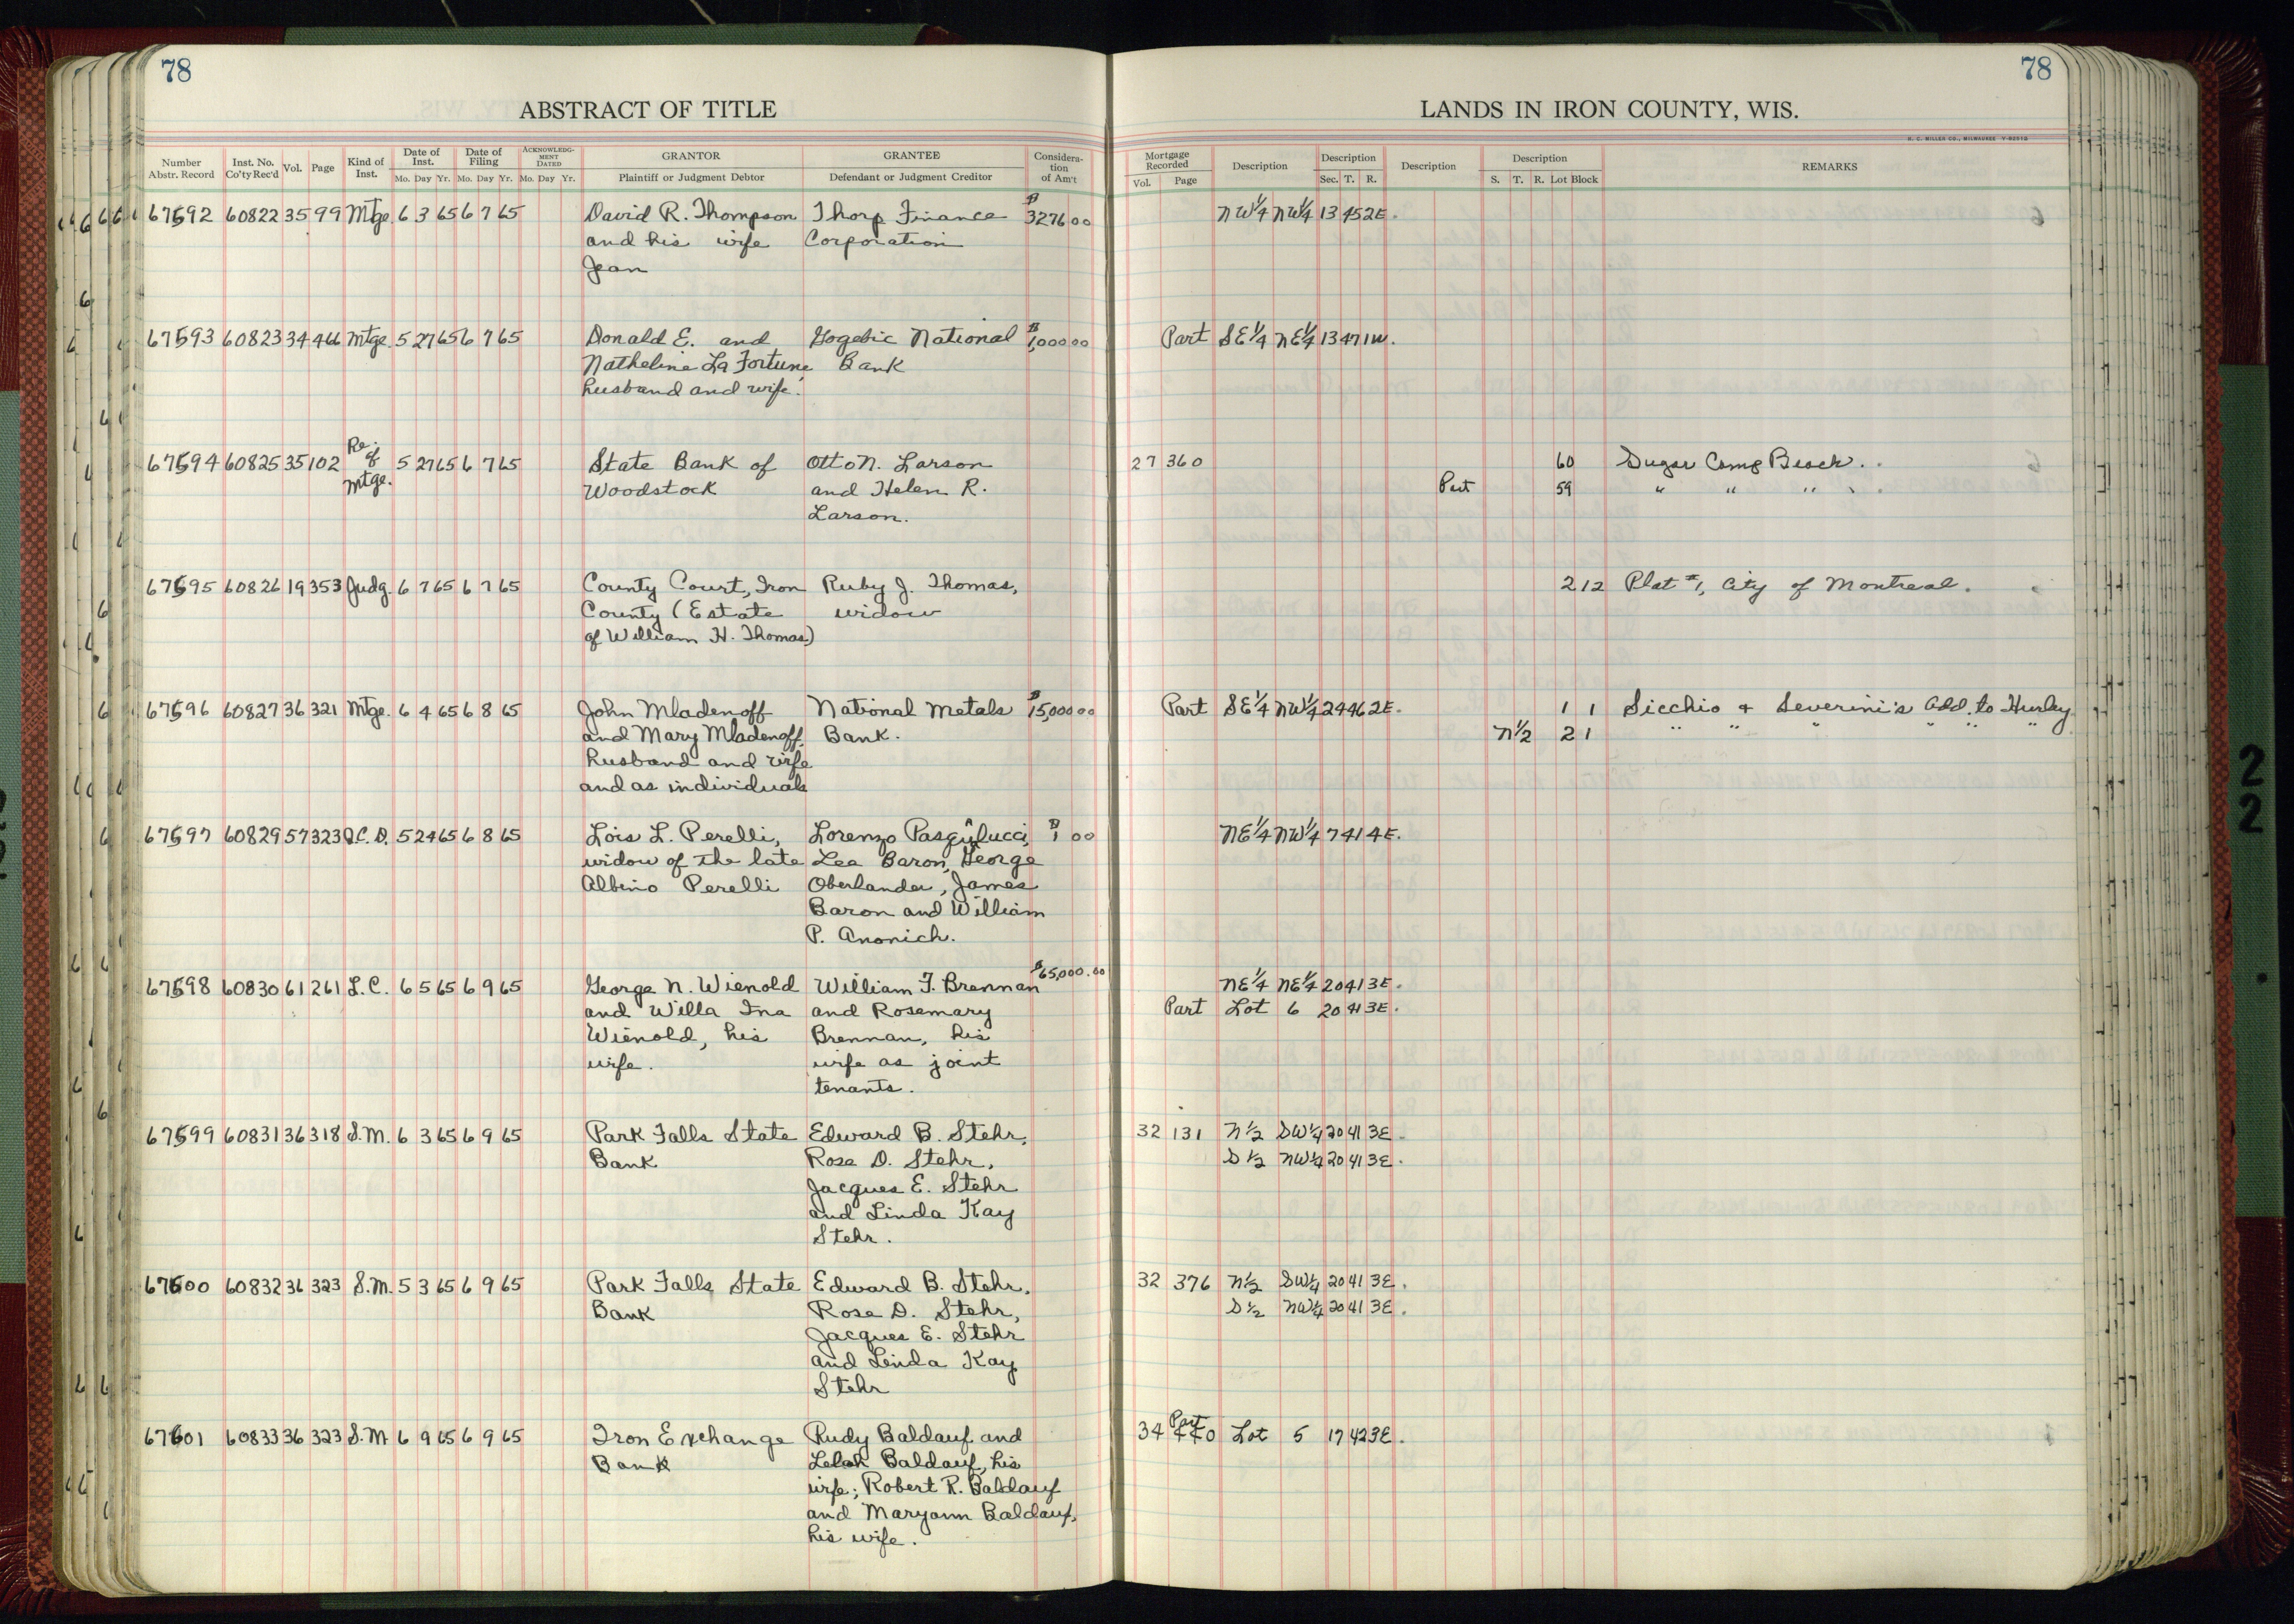 78
ABSTRACT OF TITLE
Number Abstr. Record Inst. No. Co'ty Rec'd Vol. Page Kind of Inst. Date of Inst. Mo. Day Yr. Date of Filing Mo. Day Yr. ACKNOWLEDGMENT DATED Mo. Day Yr. GRANTOR Plaintiff or Judgment Debtor GRANTEE Defendant or Judgment Creditor Consideration of Am't
67592 60822 35 99 Mtge. 6 3 65 6 7 65 David R. Thompson Thorp Finance $3276 00
and his wife Corporation
Jean
67593 60823 34 466 Mtge. 5 27 65 6 7 65 Donald E. and Gogebic National $1,000 00
Natheline La Fortune, Bank
husband and wife.
67594 60825 35 102 Re. of Mtge. 5 27 65 6 7 65 State Bank of Otto N. Larson
Woodstock and Helen R.
Larson.
67595 60826 19 353 Judg. 6 7 65 6 7 65 County Court, Iron Ruby J. Thomas,
County (Estate widow
of William H. Thomas)
67596 60827 36 321 Mtge. 6 4 65 6 8 65 John Mladenoff National Metals $15,000 00
and Mary Mladenoff, Bank.
husband and wife
and as individuals
67597 60829 57 323 Q.C.D. 5 24 65 6 8 65 Lois L. Perelli, Lorenzo Pasqulucci, $1 00
widow of the late Lea Baron, George
Albino Perelli Oberlander, James
Baron and William
P. Anonich.
67598 60830 61 261 L.C. 6 5 65 6 9 65 George N. Wienold William F. Brennan $65,000.00
and Willa Ina and Rosemary
Wienold, his Brennan, his
wife. wife as joint
tenants.
67599 60831 36 318 S.M. 6 3 65 6 9 65 Park Falls State Edward B. Stehr,
Bank Rose D. Stehr,
Jacques E. Stehr
and Linda Kay
Stehr.
67600 60832 36 323 S.M. 5 3 65 6 9 65 Park Falls State Edward B. Stehr,
Bank Rose D. Stehr,
Jacques E. Stehr
and Linda Kay
Stehr
67601 60833 36 323 S.M. 6 9 65 6 9 65 Iron Exchange Rudy Baldauf and
Bank Lelah Baldauf, his
wife; Robert R. Baldauf
and Maryann Baldauf,
his wife.
78
LANDS IN IRON COUNTY, WIS.
H. C. MILLER CO., MILWAUKEE
Mortgage Recorded Vol. Page Description Description Sec. T. R. Description Description S. T. R. Lot Block REMARKS
NW¼ NW¼ 13 45 2E.
Part SE¼ NE¼ 13 47 1W.
27 360 60 Sugar Camp Beach.
Part 59 " " "
2 12 Plat #1, City of Montreal.
Part SE¼ NW¼ 24 46 2E. 1 1 Sicchio & Severini's Add. to Hurley
N½ 2 1 " " " " " "
NE¼ NW¼ 7 41 4E.
NE¼ NE¼ 20 41 3E.
Part Lot 6 20 41 3E.
32 131 N½ SW¼ 20 41 3E.
S½ NW¼ 20 41 3E.
32 376 N½ SW¼ 20 41 3E.
S½ NW¼ 20 41 3E.
Part
34 440 Lot 5 17 42 3E.
22